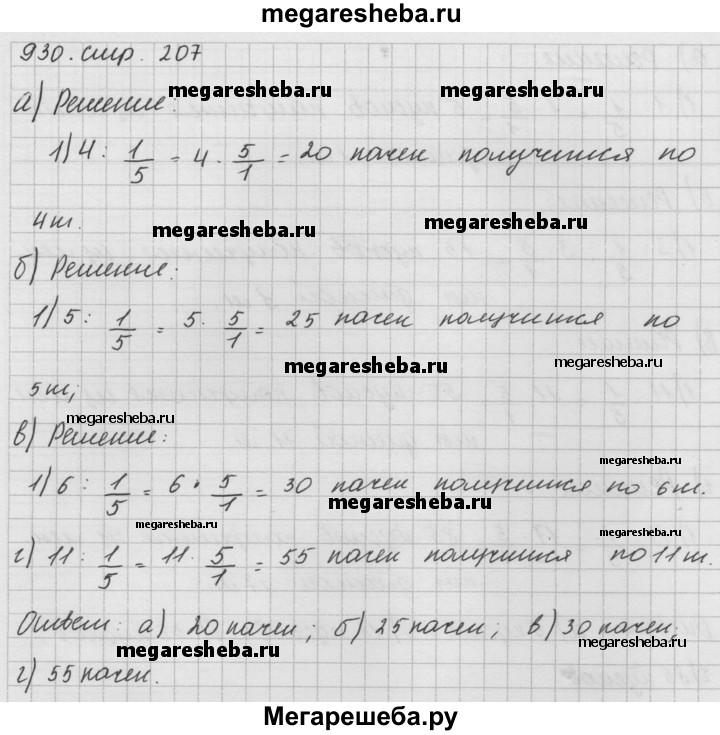 megaresheba.ru
930. стр. 207
а) Решение: megaresheba.ru megaresheba.ru
1) 4 : 1/5 = 4 · 5/1 = 20 пачек получится по
4т. megaresheba.ru megaresheba.ru
б) Решение:
1) 5 : 1/5 = 5 · 5/1 = 25 пачек получится по
megaresheba.ru megaresheba.ru
5т;
megaresheba.ru
в) Решение:
megaresheba.ru
1) 6 : 1/5 = 6 · 5/1 = 30 пачек получится по 6т.
megaresheba.ru
megaresheba.ru megaresheba.ru
г) 11 : 1/5 = 11 · 5/1 = 55 пачек получится по 11т.
Ответ: а) 20 пачек; б) 25 пачек; в) 30 пачек;
megaresheba.ru megaresheba.ru
г) 55 пачек.
Мегарешеба.ру